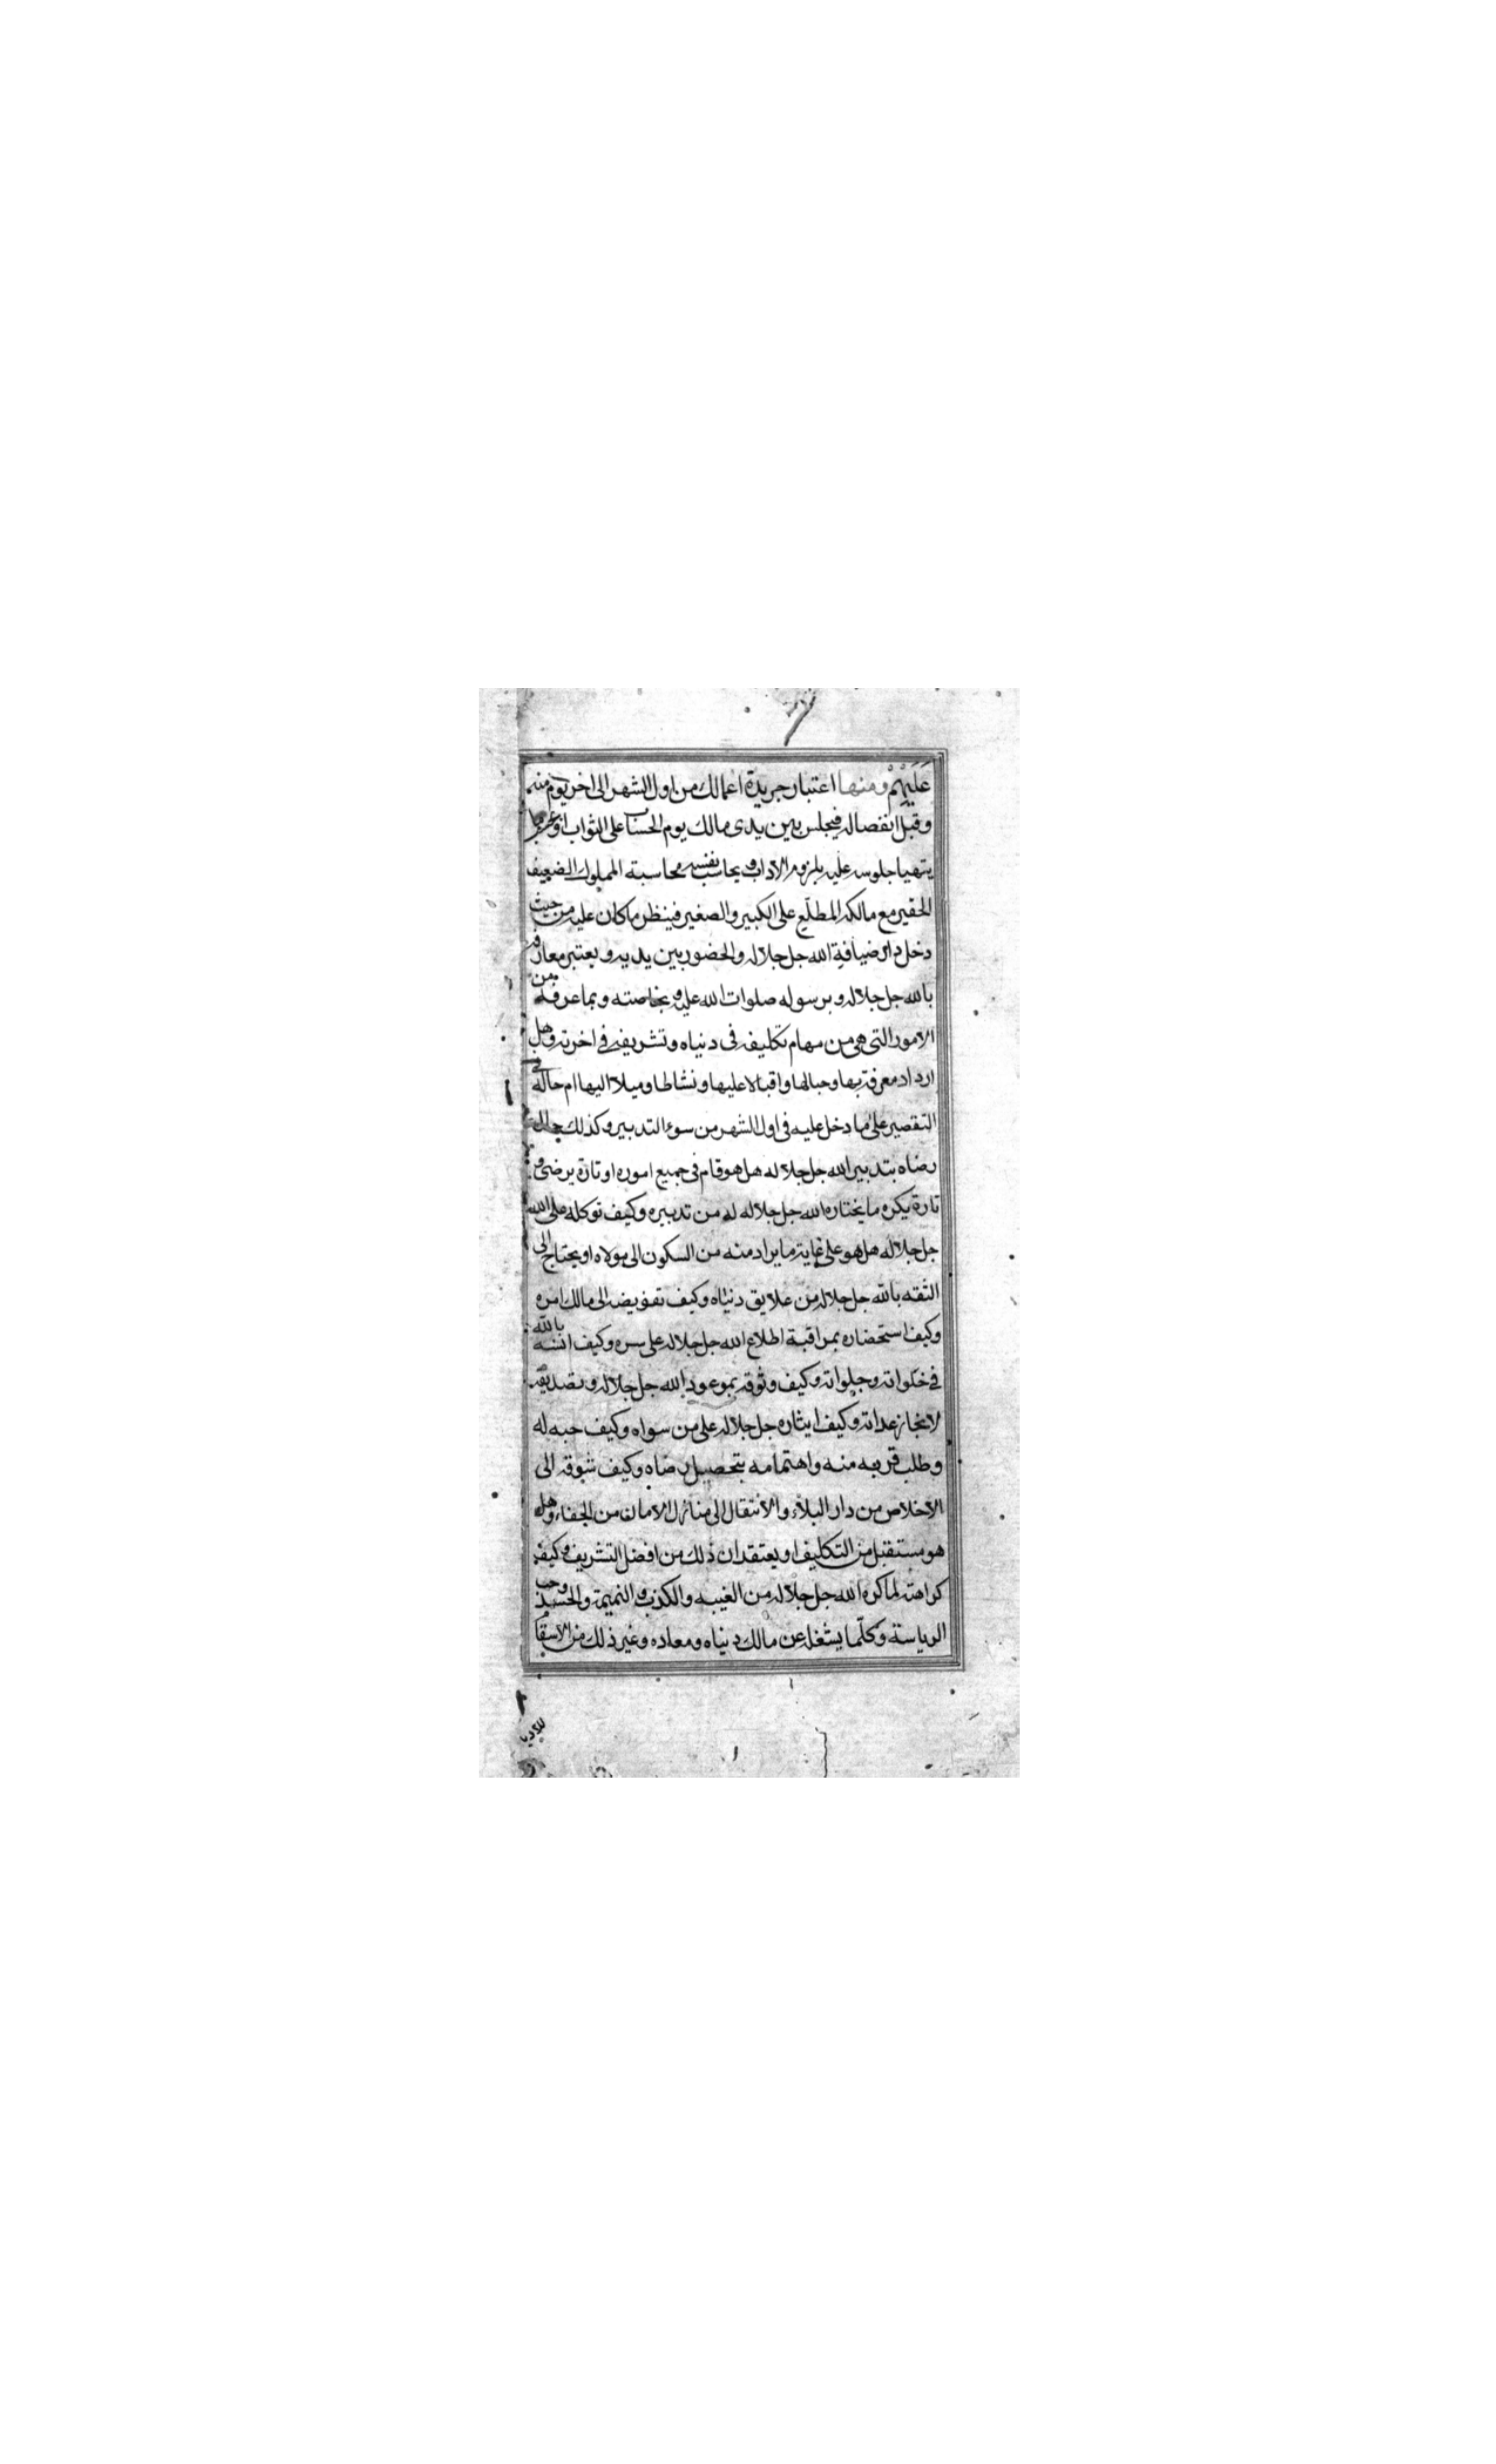 عَلَيْهِمْ ومنها اعتبار جريدة اعمالك من اول الشهر الى اخر يوم منه
وقبل انفصاله فيجلس بين يدى مالك يوم الحساب على التراب او
يتهيا جلوسه عليه بلزوم الاداب ويحاسب نفسه محاسبة المملوك الضعيف
الحقير مع مالكه المطلع على الكبير والصغير فينظر ما كان عليه من حيث
دخل دار ضيافة الله جل جلاله والحضور بين يديه ويعتبر معارفه
بالله جل جلاله وبرسوله صلوات الله عليه وبخاصته وبما عرفه من
الامور التى هى من مهام تكليفه فى دنياه وتشريفه فى اخرته وهل
ازداد معرفة بها وحبا لها واقبالا عليها ونشاطا وميلا اليها ام حاله فى
التقصير على ما دخل عليه فى اول الشهر من سوء التدبير وكذلك حال
رضاه بتدبير الله جل جلاله هل هو قام فى جميع اموره او تارة يرضى و
تارة يكره ما يختاره الله جل جلاله له من تدبيره وكيف توكله على الله
جل جلاله هل هو على غاية ما يراد منه من السكون الى مولاه او يحتاج الى
الثقه بالله جل جلاله من علايق دنياه وكيف تفويضه الى مالك امره
وكيف استحضاره بمراقبة اطلاع الله جل جلاله على سره وكيف انسه بالله
فى خلواته وجلواته وكيف وثوقه بموعود الله جل جلاله وتصديقه
لانجاز عداته وكيف ايثاره جل جلاله على من سواه وكيف حبه له
وطلب قربه منه واهتمامه بتحصيل رضاه وكيف شوقه الى
الاخلاص من دار البلاء والانتقال الى منازل الامان من الجفاء وهل
هو مستقبل من التكليف او يعتقد ان ذلك من افضل التشريف وكيف
كراهته لما كره الله جل جلاله من الغيبه والكذب والنميمة والحسد وحب
الرياسة وكلما يشغله عن مالك دنياه ومعاده وغير ذلك من الاسقام